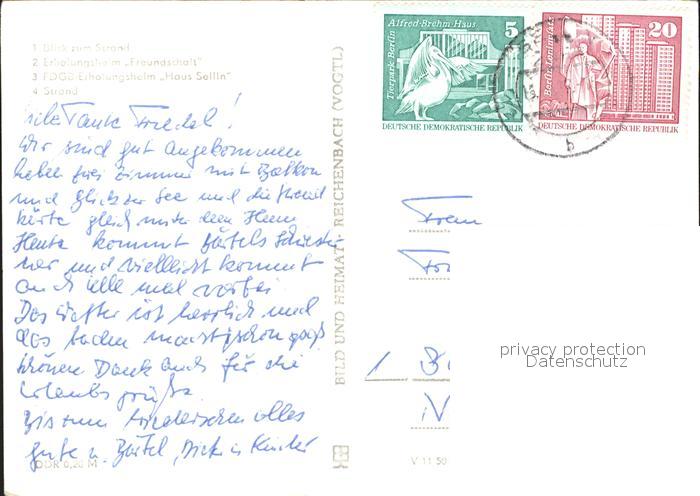 1 Blick zum Strand
2 Erholungsheim „Freundschaft"
3 FDGB-Erholungsheim „Haus Sellin"
4 Strand
Tante Friedel!
Wir sind gut angekommen
haben zwei Zimmer mit Balkon
und Blick zur See und die Strand
gleich unter dem Haus
Heute kommt Bärbels Schwester
her und vielleicht kommt
auch mal vorbei
Das Wetter ist herrlich und
das baden macht schon
schönen Dank auch für die
Urlaubs grüße
Bis zum Wiedersehen alles
Gute u. Bärbel, Dick u Kinder
DDR 0,20 M
BILD UND HEIMAT · REICHENBACH (VOGTL)
V 11 50
Alfred-Brehm-Haus
Tierpark Berlin
5
DEUTSCHE DEMOKRATISCHE REPUBLIK
Berlin-Leninplatz
20
DEUTSCHE DEMOKRATISCHE REPUBLIK
b
Frau
1
privacy protection
Datenschutz